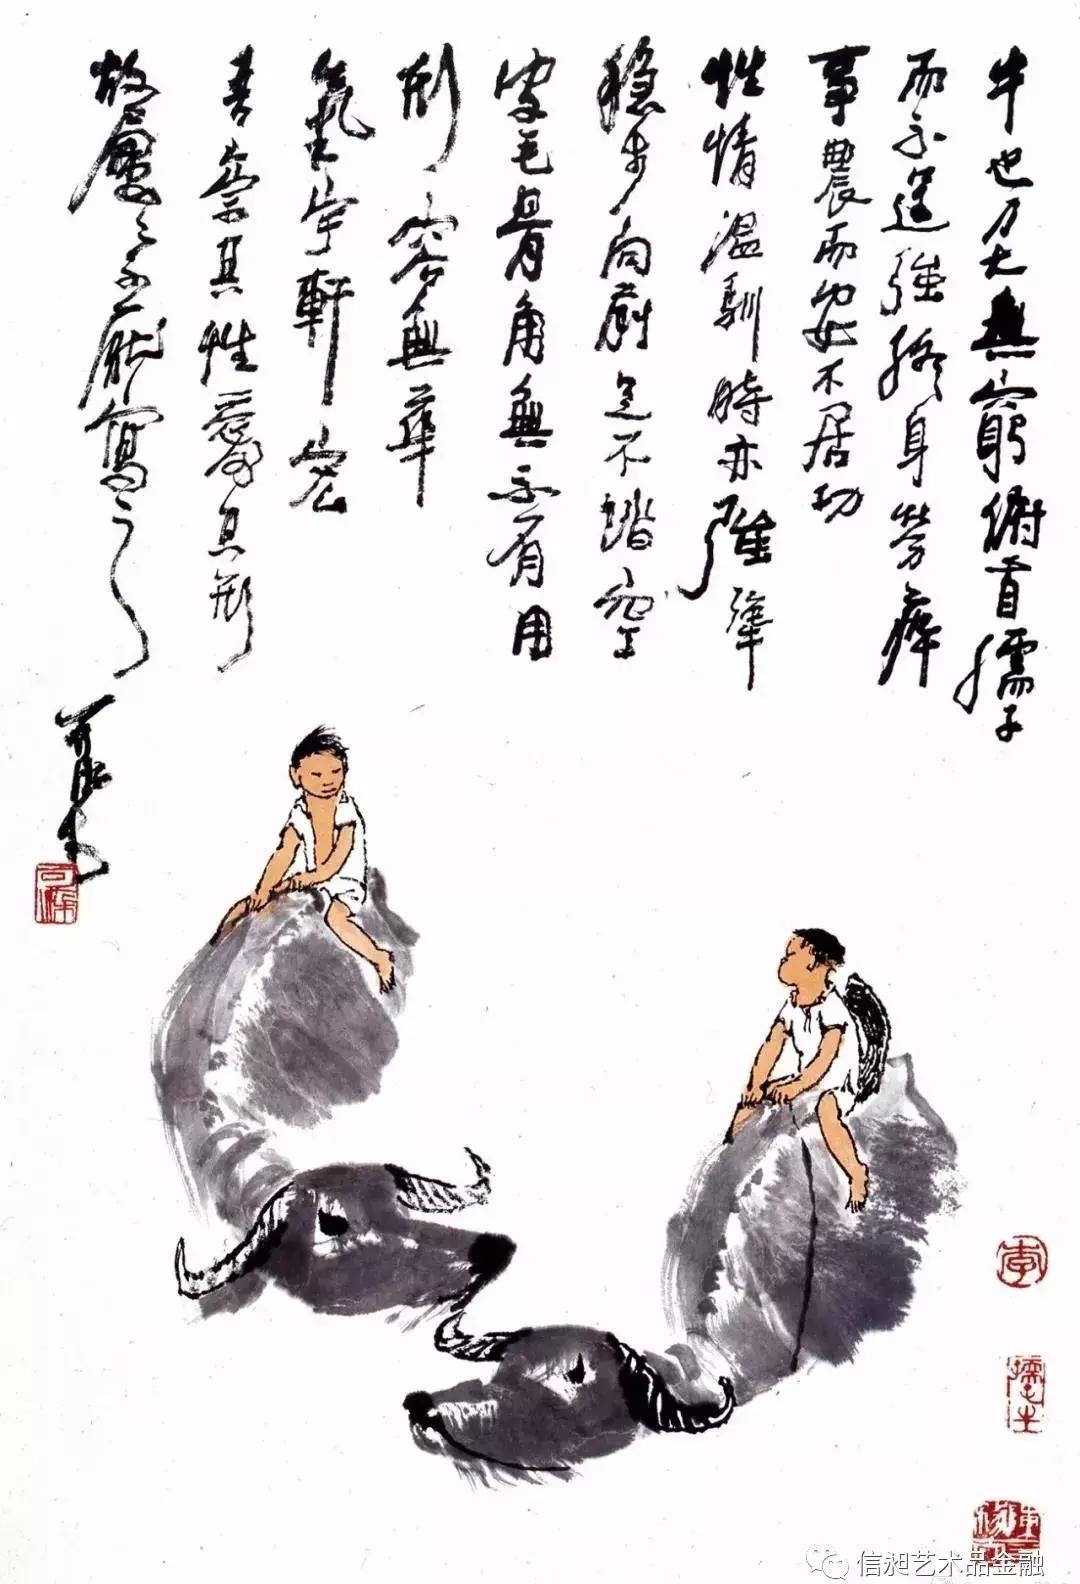 牛也力大無窮俯首孺子
而不逞強終身勞瘁
事農而安不居功
性情溫馴時亦強犟
穩步向前足不踏空
皮毛骨角無不有用
形容無華
氣宇軒宏
吾崇其性愛其形
故屢屢不厭寫之
可染
可染
李
孺牛
信昶艺术品金融